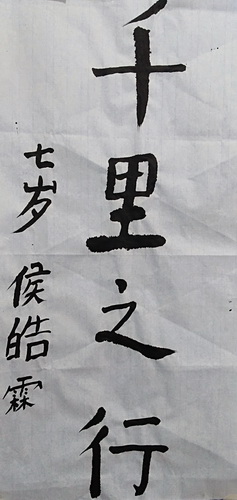 千里之行
七岁 侯皓霖